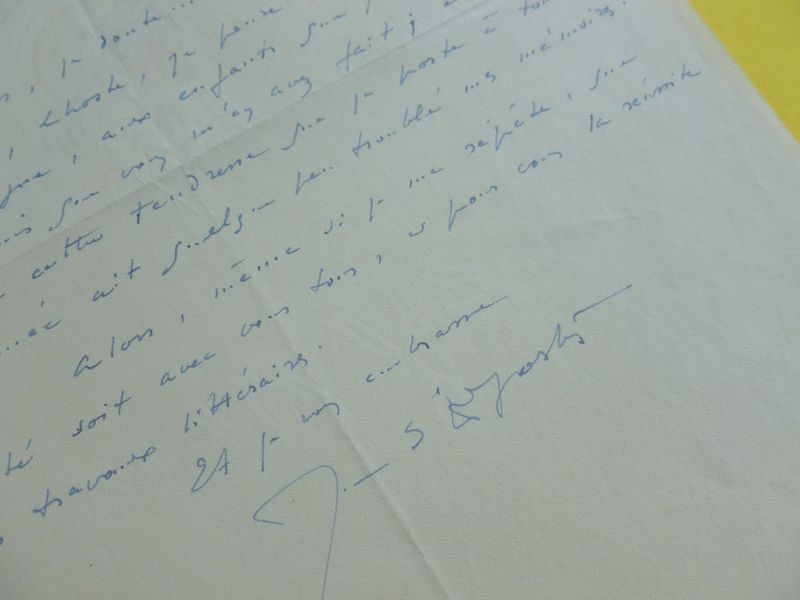 , je doute...
, je pense
, aux enfants que
que vous m'en avez fait ; e
cette tendresse que je porte à tou
ait quelque peu troublé mes mémoires.
Alors, même si je me répète, que
té soit avec vous tous, et pour vous la réussite
travaux littéraires.
Et je vous embrasse